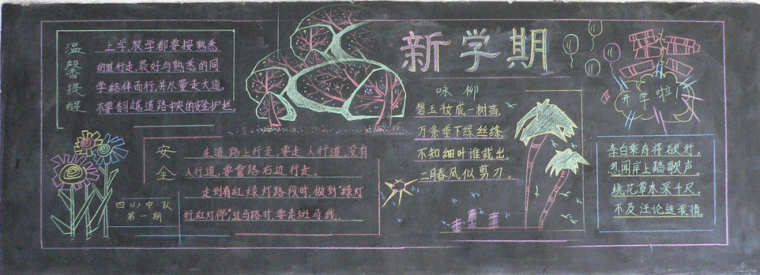 温馨提醒
上学、放学都要按熟悉
的道行走,最好与熟悉的同
学结伴而行,并尽量走大道,
不要翻越道路中央的安全护栏
安全
在道路上行走,要走人行道,没有
人行道,要靠路右边行走。
走到有红绿灯路段时,做到"绿灯
行红灯停",过马路时,要走斑马线。
四(1)中队
第一期
新学期
咏柳
碧玉妆成一树高,
万条垂下绿丝绦。
不知细叶谁裁出,
二月春风似剪刀。
开学啦
李白乘舟将欲行,
忽闻岸上踏歌声。
桃花潭水深千尺,
不及汪伦送我情。